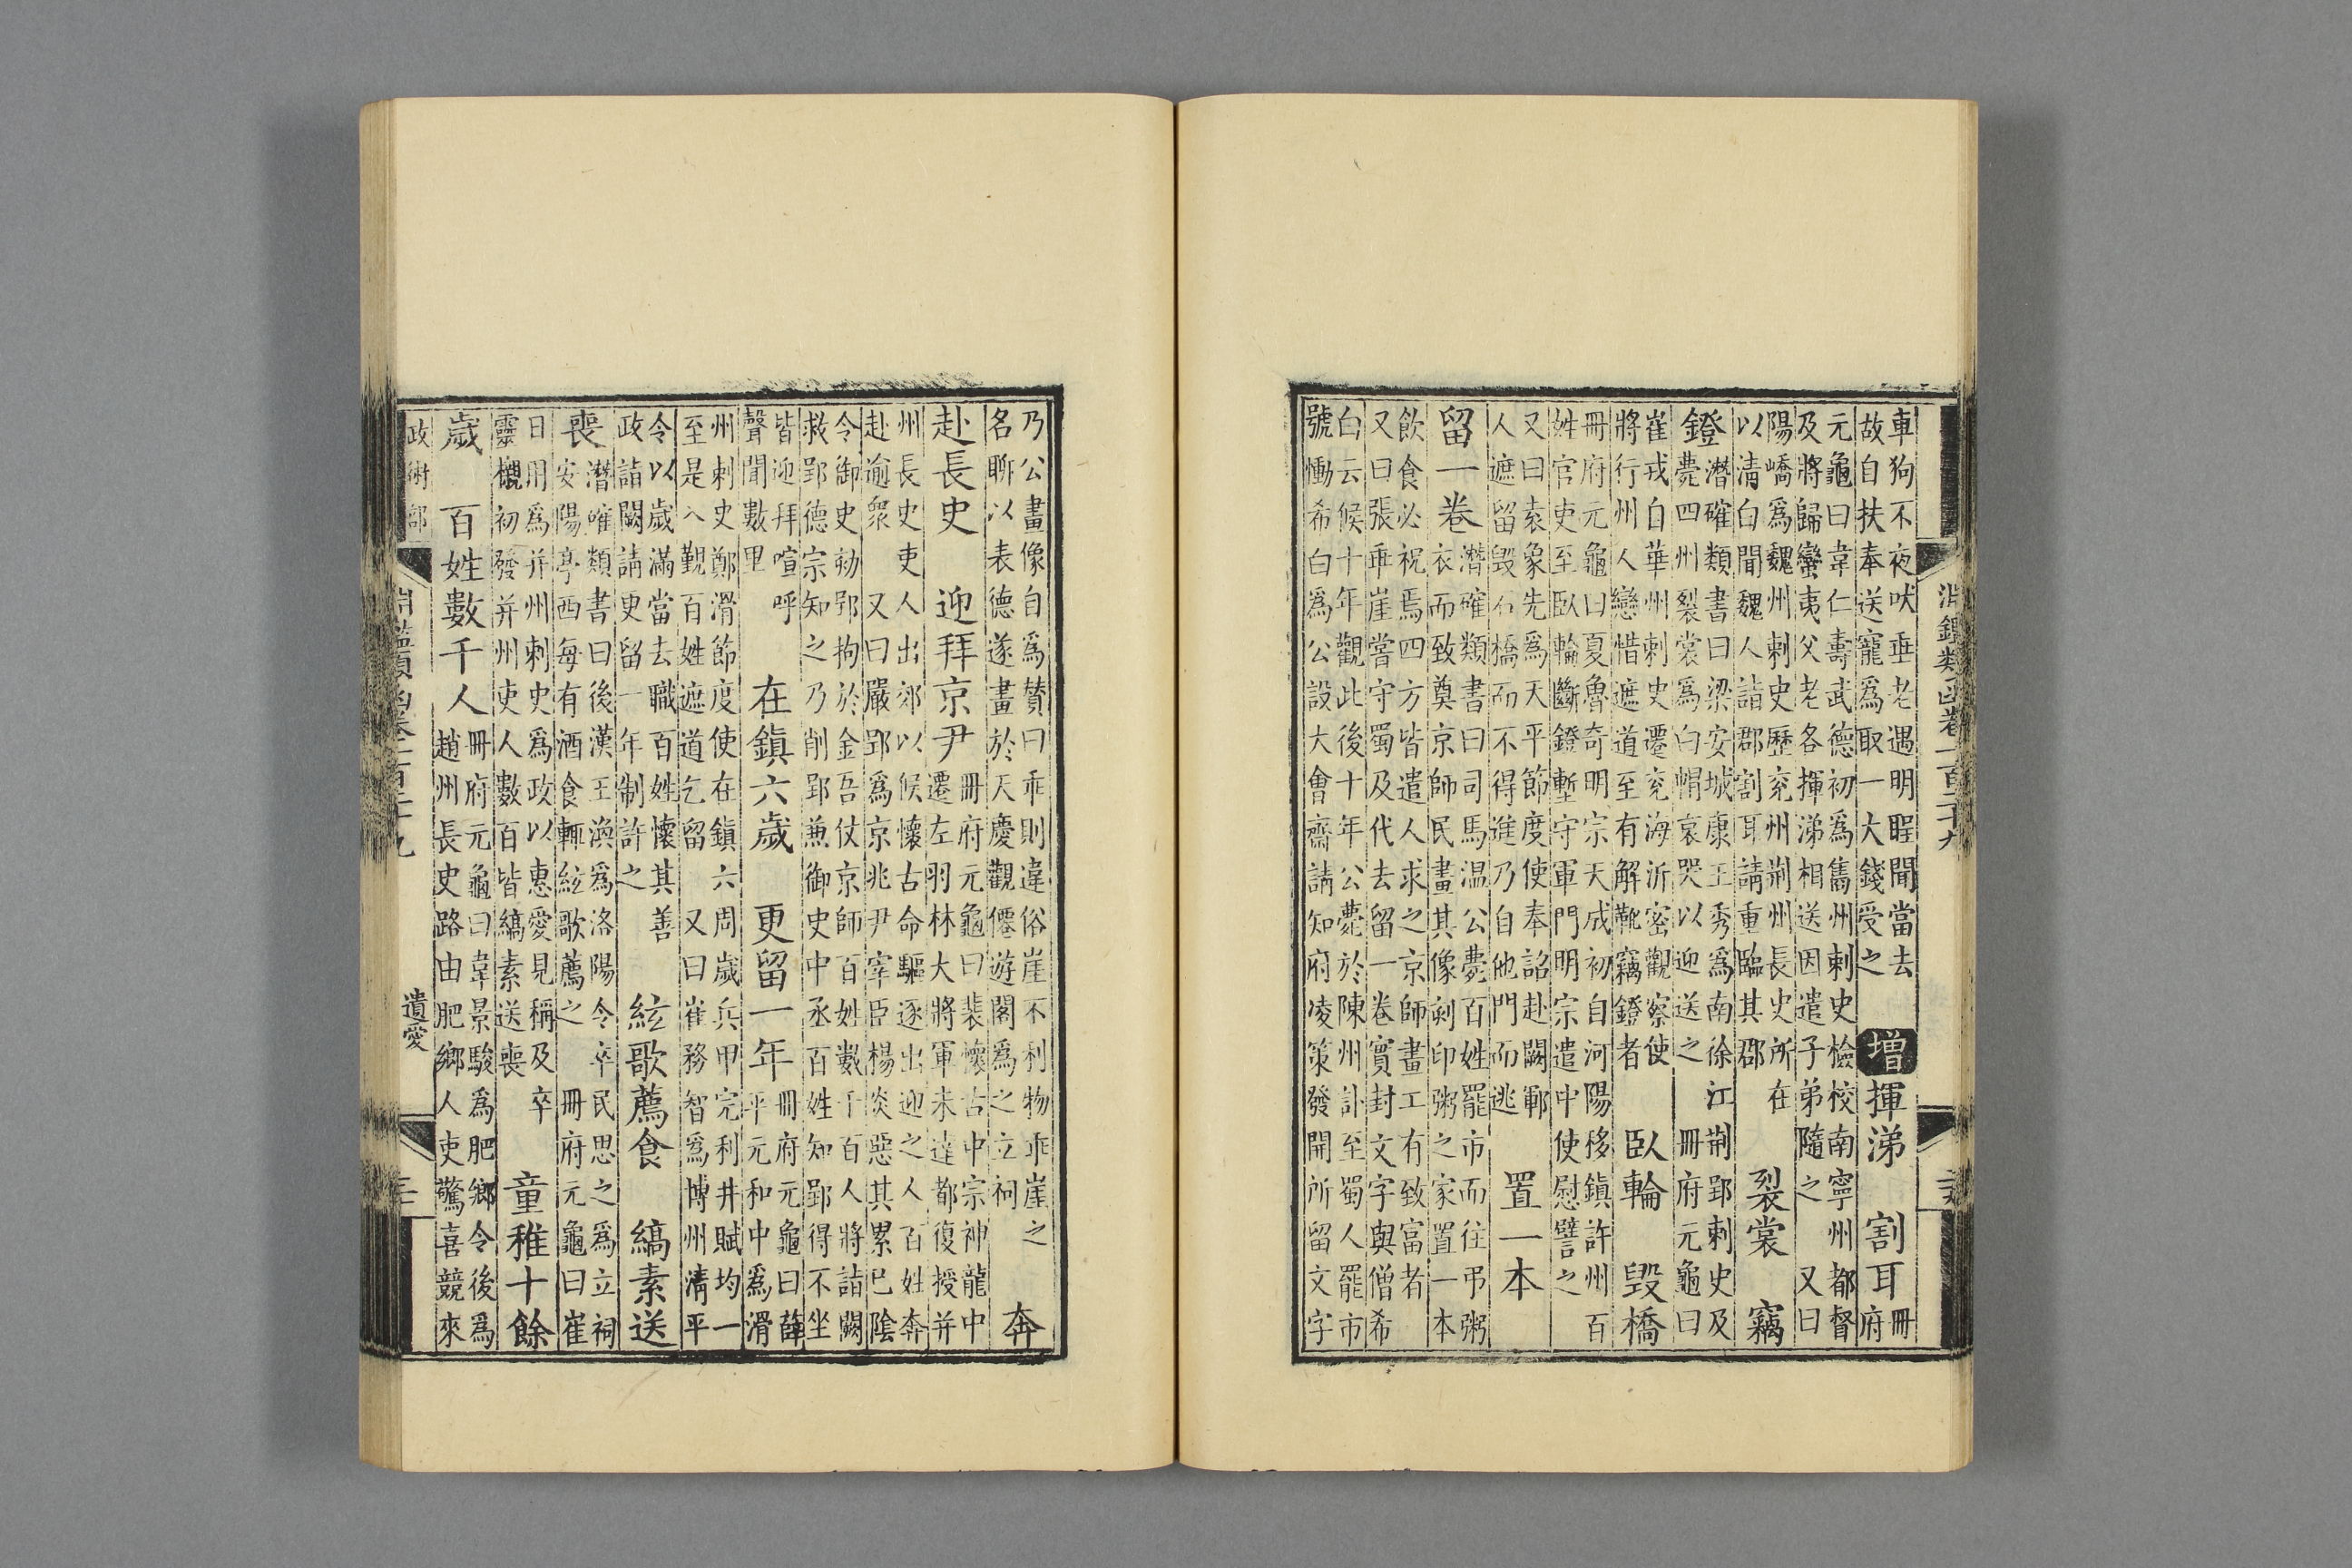 淵鑑類函卷一百二十九
車狗不夜吠垂老遇明眰聞當去
故自扶奉送寵爲取一大錢受之
增揮涕 割耳
冊
府
元龜曰韋仁壽武德初爲雋州刺史檢校南寧州都督
及將歸蠻夷父老各揮涕相送因遣子弟隨之 又曰
陽嶠爲魏州刺史歷兖州荆州長史所在
以清白聞魏人詣郡割耳請重臨其郡
裂裳 竊
鐙
潛確類書曰梁安城康王秀爲南徐江荆郢刺史及
薨四州裂裳爲白帽哀哭以迎送之 冊府元龜曰
崔戎自華州刺史遷兖海沂密觀察使
將行州人戀惜遮道至有解靴竊鐙者
臥輪 毀橋
冊府元龜曰夏魯奇明宗天成初自河陽移鎮許州百
姓官吏至臥輪斷鐙塹守軍門明宗遣中使慰譬之
又曰袁象先爲天平節度使奉詔赴闕鄆
人遮留毀石橋而不得進乃自他門而逃
置一本
留一卷
潛確類書曰司馬温公薨百姓罷市而往弔粥
衣而致奠京師民畫其像剡印粥之家置一本
飲食必祝焉四方皆遣人求之京師畫工有致富者
又曰張乖崖嘗守蜀及代去留一卷實封文字與僧希
白云候十年觀此後十年公薨於陳州訃至蜀人罷市
號慟希白爲公設大會齋請知府凌策發開所留文字
乃公畫像自爲賛曰乖則違俗崖不利物乖崖之
名聊以表德遂畫於天慶觀僊遊閣爲之立祠
奔
赴長史 迎拜京尹
冊府元龜曰裴懷古中宗神龍中
遷左羽林大將軍未達都復授并
州長史吏人出郊以候懷古命驅逐出迎之人百姓奔
赴逾衆 又曰嚴郢爲京兆尹宰臣楊炎惡其累已陰
令御史劾郢拘於金吾仗京師百姓數千百人將詣闕
救郢德宗知之乃削郢兼御史中丞百姓知郢得不坐
皆迎拜喧呼
聲聞數里
在鎮六歲 更留一年
冊府元龜曰薛
平元和中爲滑
州刺史鄭滑節度使在鎮六周歲兵甲完利井賦均一
至是入覲百姓遮道乞留 又曰崔務智爲博州清平
令以歲滿當去職百姓懷其善
政詣闕請更留一年制許之
絃歌薦食 縞素送
喪
潛確類書曰後漢王渙爲洛陽令卒民思之爲立祠
安陽亭西每有酒食輒絃歌薦之 冊府元龜曰崔
日用爲并州刺史爲政以惠愛見稱及卒
靈櫬初發并州吏人數百皆縞素送喪
童稚十餘
歲 百姓數千人
冊府元龜曰韋景駿爲肥鄉令後爲
趙州長史路由肥鄉人吏驚喜競來
政術部
遺愛